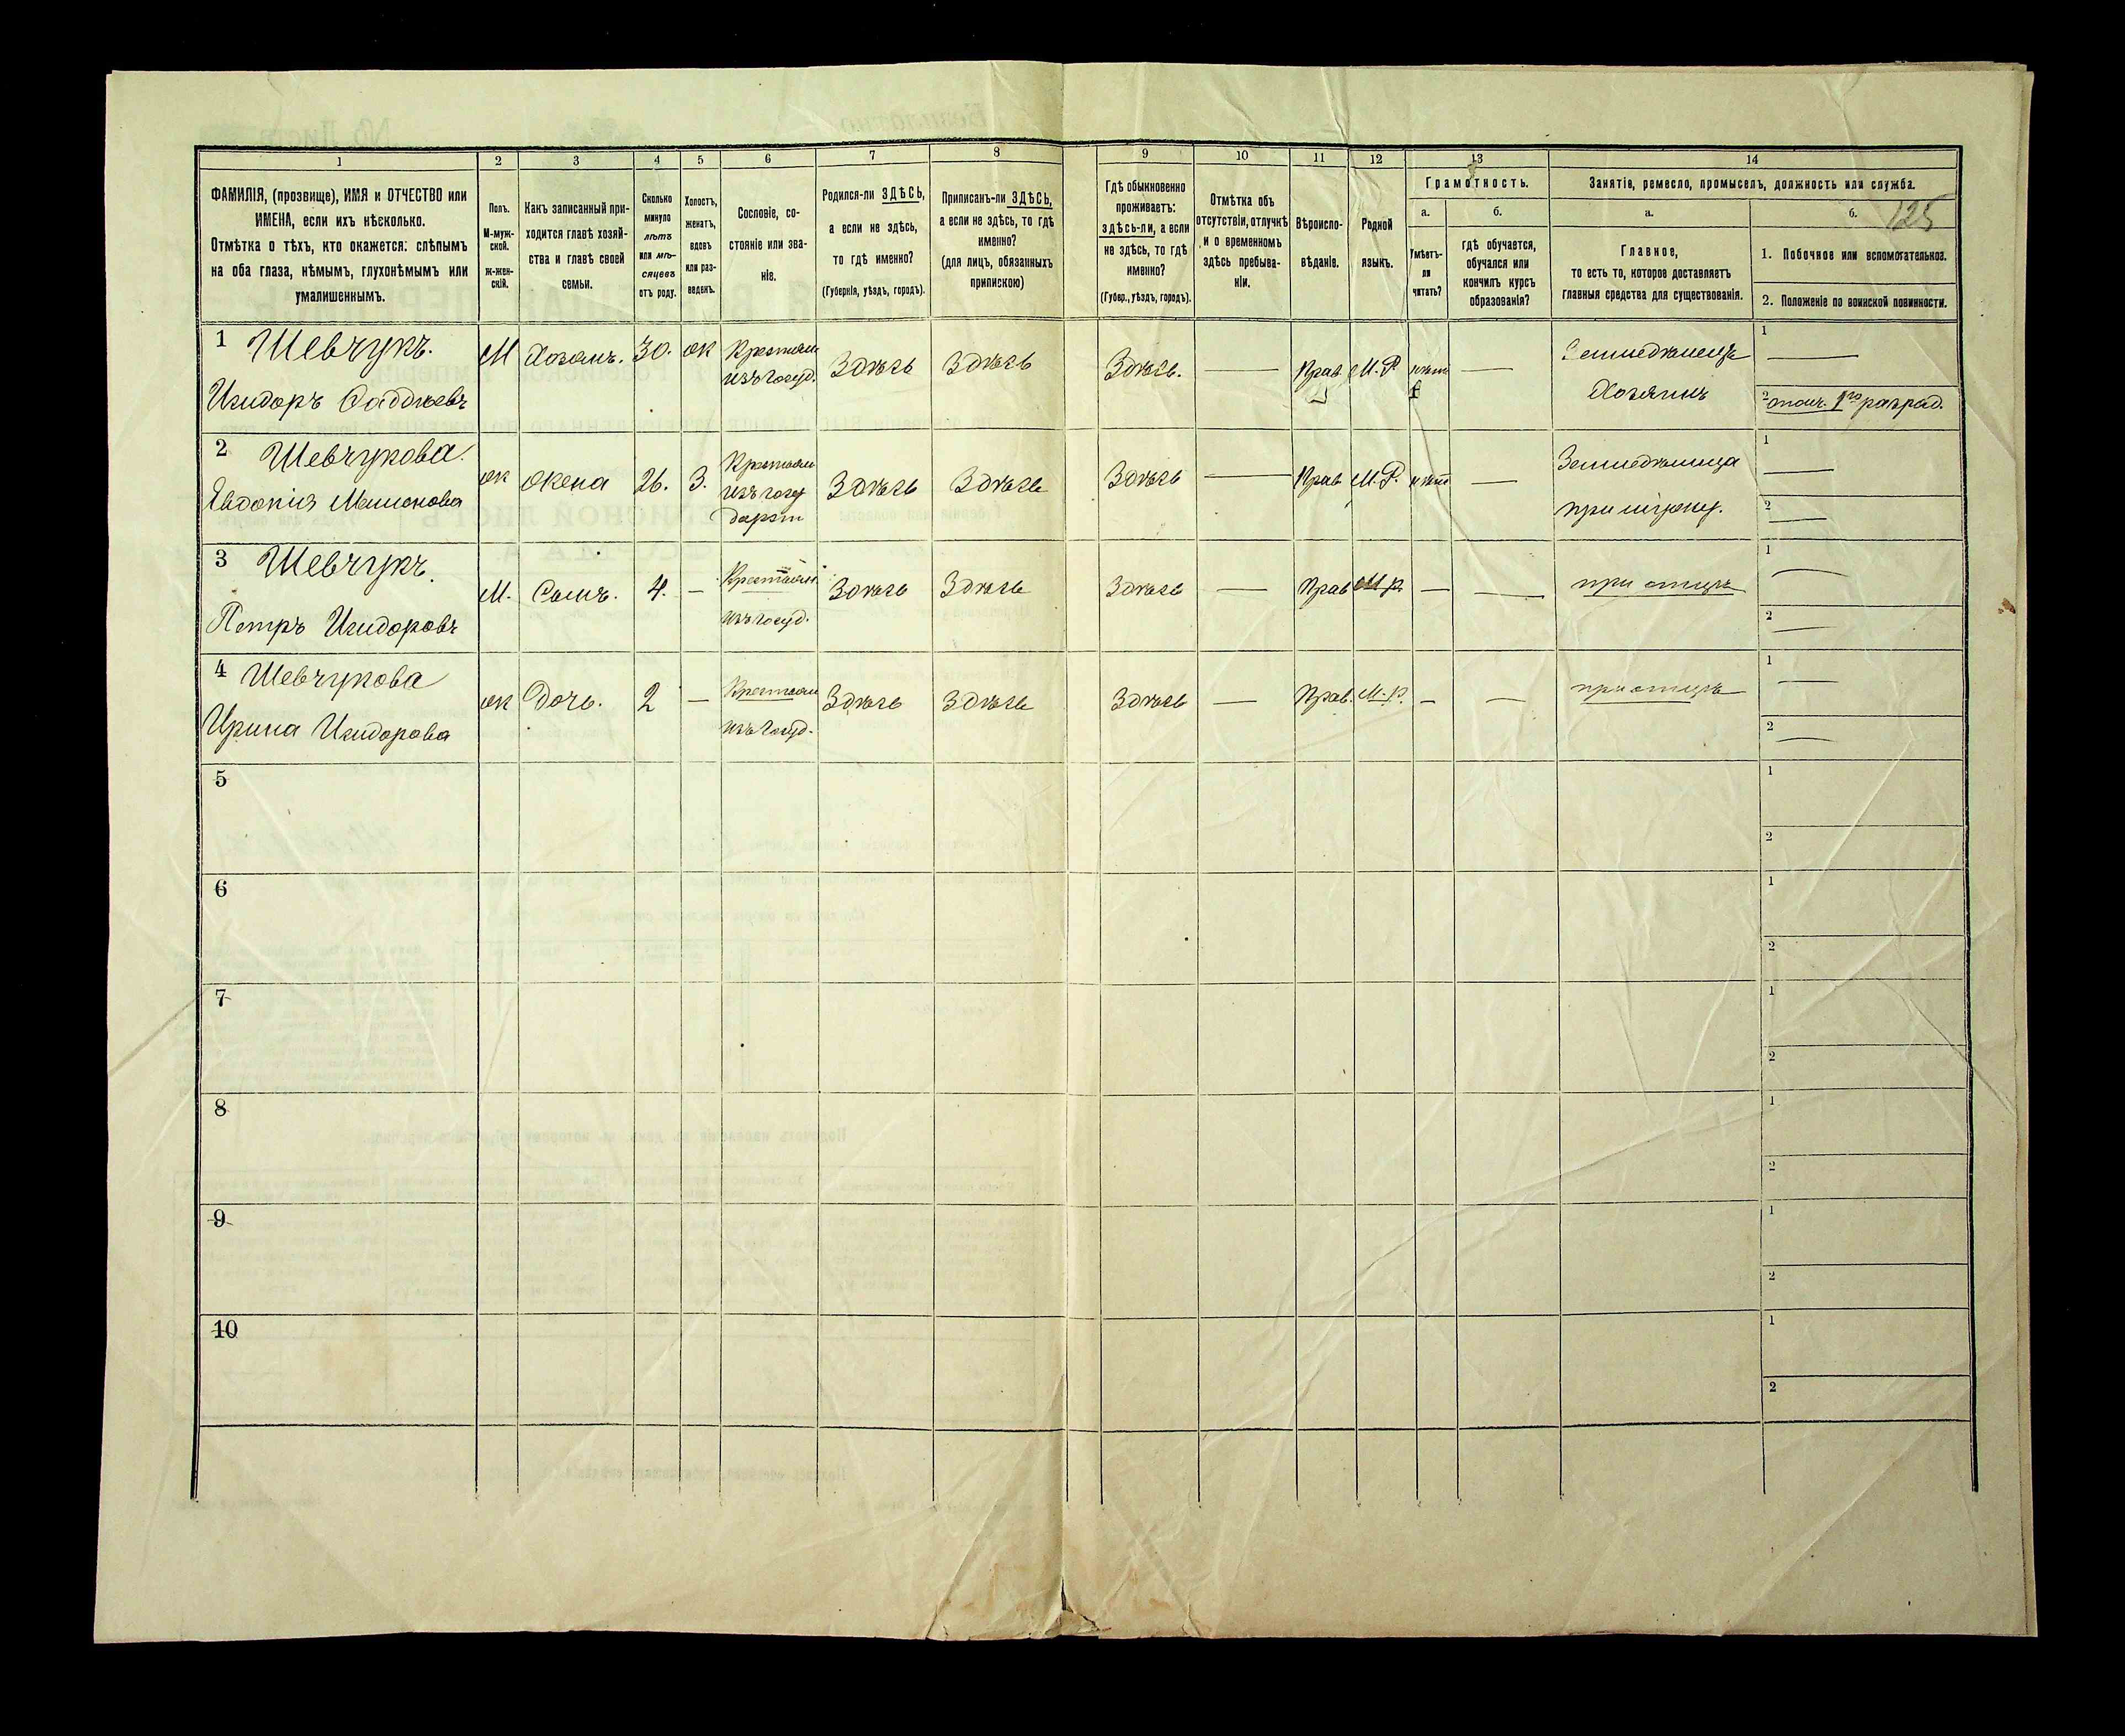 125
1 2 3 4 5 6 7 8 9 10 11 12 13 14
ФАМИЛІЯ, (прозвище), ИМЯ и ОТЧЕСТВО или
ИМЕНА, если ихъ нѣсколько.
Отмѣтка о тѣхъ, кто окажется: слѣпымъ
на оба глаза, нѣмымъ, глухонѣмымъ или
умалишеннымъ.
Полъ.
М-муж-
ской.
ж-жен-
скій.
Какъ записанный при-
ходится главѣ хозяй-
ства и главѣ своей
семьи.
Сколько
минуло
лѣтъ
или мѣ-
сяцевъ
отъ роду.
Холостъ,
женатъ,
вдовъ
или раз-
веденъ.
Сословіе, со-
стояніе или зва-
ніе.
Родился-ли ЗДѢСЬ,
а если не здѣсь,
то гдѣ именно?
(Губернія, уѣздъ, городъ).
Приписанъ-ли ЗДѢСЬ,
а если не здѣсь, то гдѣ
именно?
(для лицъ, обязанныхъ
припискою)
Гдѣ обыкновенно
проживаетъ:
здѣсь-ли, а если
не здѣсь, то гдѣ
именно?
(Губер., уѣздъ, городъ).
Отмѣтка объ
отсутствіи, отлучкѣ
и о временномъ
здѣсь пребыва-
ніи.
Вѣроиспо-
вѣданіе.
Родной
языкъ.
Грамотность.
а.
Умѣетъ-
ли
читать?
б.
гдѣ обучается,
обучался или
кончилъ курсъ
образованія?
Занятіе, ремесло, промыселъ, должность или служба.
а.
Главное,
то есть то, которое доставляетъ
главныя средства для существованія.
б.
1. Побочное или вспомогательное.
2. Положеніе по воинской повинности.
1 Шевчукъ.
Исидоръ Фаддѣевъ
М Хозяинъ. 30. ж
Крестьян
изъ госуд.
Здѣсь Здѣсь Здѣсь. — Прав М.Р нѣтъ —
Земледѣлецъ
Хозяинъ
1 —
2 ополч. 1го разряд.
2 Шевчукова.
Евдокія
ж жена 26. З.
Крестьян
изъ госу
дарст
Здѣсь Здѣсь Здѣсь — Прав М.Р. нѣтъ —
при
1 —
2 —
3 Шевчукъ.
Петръ Исидоровъ
М. Сынъ. 4. —
Крестьян.
изъ госуд.
Здѣсь Здѣсь Здѣсь — Прав М.р. — —
при отцѣ
1 —
2 —
4 Шевчукова
Ирина Исидорова
ж Дочь. 2 —
Крестьян
изъ госуд.
Здѣсь Здѣсь Здѣсь — Прав. М.р. — —
при отцѣ
1 —
2 —
5
1
2
6
1
2
7
1
2
8
1
2
9
1
2
10
1
2